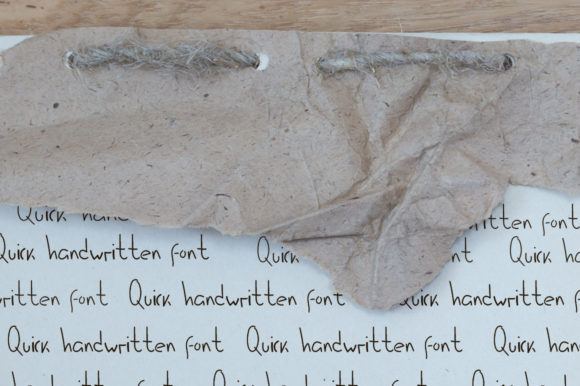 Quick font
Quick handwritten font Quick Quick
font Quick handwritten font handwritten
Quick handwritten font Quick handwritten font Quick